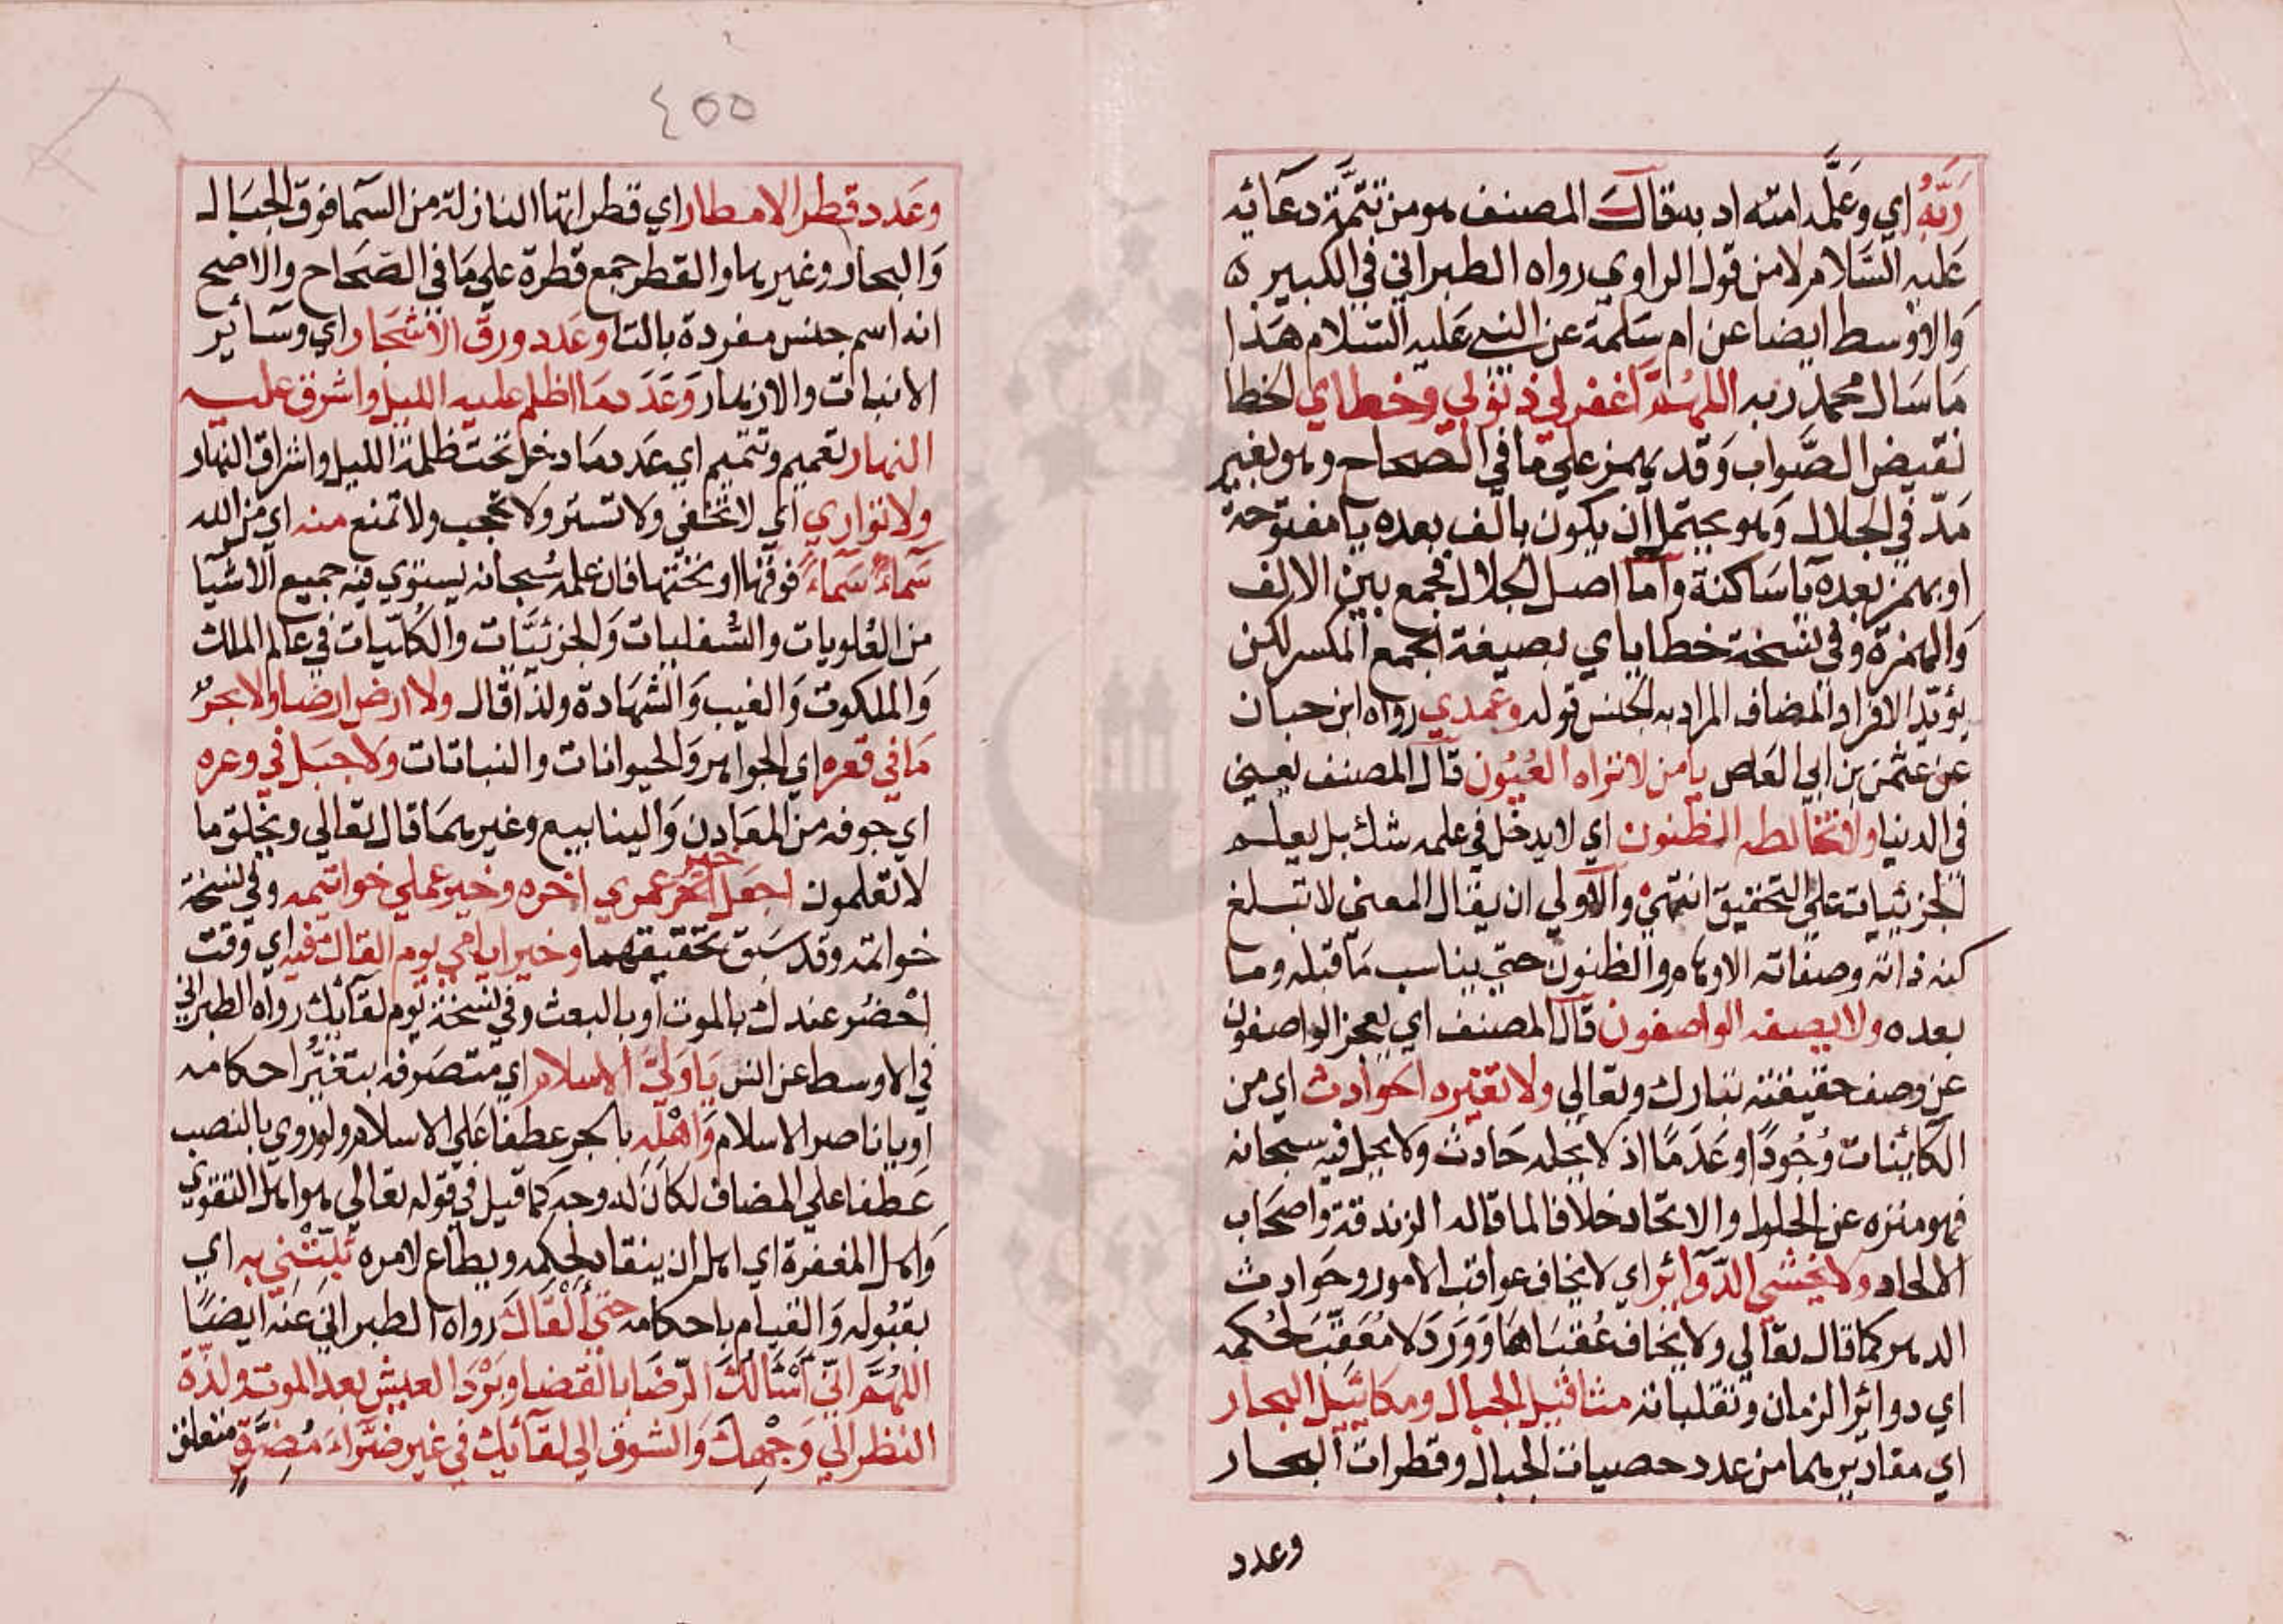 ربه اي وعلمه امته اد به قال المصنف هو من تتمة دعائه
عليه السلام لا من قول الراوي رواه الطبراني في الكبير ه
والاوسط ايضا عن ام سلمة عن النبي عليه السلام هذا
ما سال محمد ربه اللهم اغفر لي ذنوبي وخطاي الخطا
نقيض الصواب وقد يهمز علي ما في الصحاح وهو بغير
مد في الجلال وهو يحتمل ان يكون بالف بعده يا مفتوحة
او بهمز بعده يا ساكنة واما اصل الجلال فجمع بين الالف
والهمزة وفي نسخة خطاياي بصيغة الجمع المكسر لكن
يؤيد الافراد المضاف المراد به الجنس قوله وعمدي رواه ابن حبان
عن عثمن بن ابي العاص يا من لا تراه العيون قال المصنف يعني
في الدنيا ولا تخالطه الظنون اي لا يدخل في علمه شك بل يعلم
الجزئيات علي التحقيق انتهي والاولي ان يقال المعني لا تبلغ
كنه ذاته وصفاته الاوهام والظنون حتي يناسب ما قبله وما
بعده ولا يصفه الواصفون قال المصنف اي يعجز الواصفون
عن وصف حقيقته تبارك وتعالي ولا تغيره الحوادث اي من
الكائنات وجودا وعدما اذ لا يحله حادث ولا يحل فيه سبحانه
فهو منزه عن الحلول والاتحاد خلافا لما قاله الزندقة واصحاب
الالحاد ولا يخشي الدوائر اي لا يخاف عواقب الامور وحوادث
الدهر كما قال تعالي ولا يخاف عقباها وورد لا معقب لحكمه
اي دوائر الزمان وتقلباته مثاقيل الجبال ومكائيل البحار
اي مقاديرهما من عدد حصيات الجبال وقطرات البحار
وعدد
٤٥٥
وعدد قطر الامطار اي قطراتها النازلة من السما فوق الجبال
والبحار وغيرها والقطر جمع قطرة علي ما في الصحاح والاصح
انه اسم جنس مفردة بالتا وعدد ورق الاشجار اي وسائر
الانبات والازهار وعدد ما اظلم عليه الليل واشرق عليه
النهار تعميم وتتميم اي عدد ما دخل تحت ظلمة الليل واشراق النهار
ولا تواري اي لا تخفي ولا تستر ولا تحجب ولا تمنع منه اي من الله
سماء سماء فوقها او تحتها فان علمه سبحانه يستوي فيه جميع الاشيا
من العلويات والسفليات والجزئيات والكليات في عالم الملك
والملكوت والغيب والشهادة ولذا قال ولا ارض ارضا ولا بحر
ما في قعره اي الجواهر والحيوانات والنباتات ولا جبل في وعره
اي جوفه من المعادن والينابيع وغيرهما قال تعالي ويخلق ما
لا تعلمون اجعل خير عمري اخره وخير عملي خواتيمه وفي نسخة
خواتمه وقد سبق تحقيقهما وخير ايامي يوم القاك فيه اي وقت
احضر عندك بالموت او بالبعث وفي نسخة يوم لقائك رواه الطبراني
في الاوسط عن انس يا ولي الاسلام اي متصرفه بتغير احكامه
او يا ناصر الاسلام واهله بالجر عطفا علي الاسلام ولو روي بالنصب
عطفا علي المضاف لكان له وجه كما قيل في قوله تعالي هو اهل التقوي
واهل المغفرة اي اهل ان ينقاد لحكمه ويطاع لامره ثبتني به اي
بقبوله والقيام باحكامه حتي القاك رواه الطبراني عنه ايضا
اللهم اني اسالك الرضا بالقضا وبرد العيش بعد الموت ولذة
النظر الي وجهك والشوق الي لقائك في غير ضراء مضرة متعلق